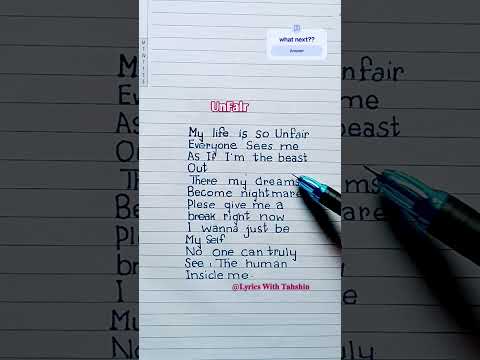 what next??
Answer
UnFaIr
My life is so Unfair
Everyone Sees me
As If I'm the beast
Out
There my dreams
Become nightmare
Plese give me a
break right now
I wanna just be
My Self
No One can truly
See , The human
Inside me
@Lyrics With Tahshin